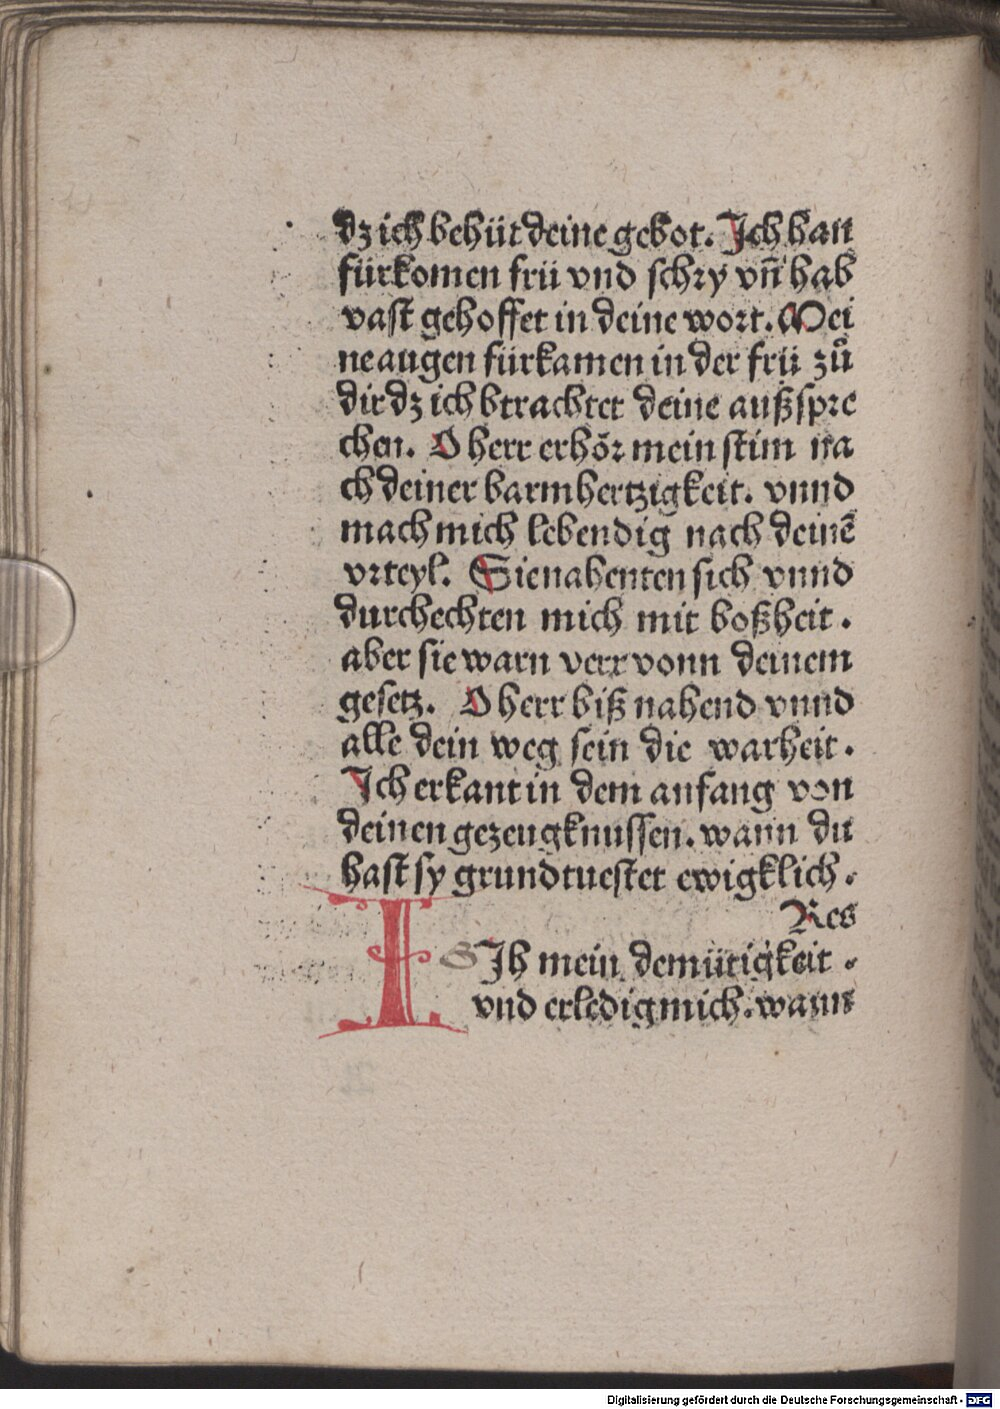 dz ich behüt deine gebot. Ich han
fürkomen frü vnd schry vñ hab
vast gehoffet in deine wort. Mei
ne augen fürkamen in der frü zů
dir dz ich btrachtet deine außspre
chen. O herr erhör mein stim na
ch deiner barmhertzigkeit. vnnd
mach mich lebendig nach deinē
vrteyl. Sie nahenten sich vnnd
durchechten mich mit boßheit.
aber sie warn verr vonn deinem
gesetz. O herr biß nahend vnnd
alle dein weg sein die warheit.
Ich erkant in dem anfang von
deinen gezeugknussen. wann du
hast sy grundtuestet ewigklich.
Res
I SIh mein demütigkeit.
vnd erledig mich. wann
Digitalisierung gefördert durch die Deutsche Forschungsgemeinschaft - DFG